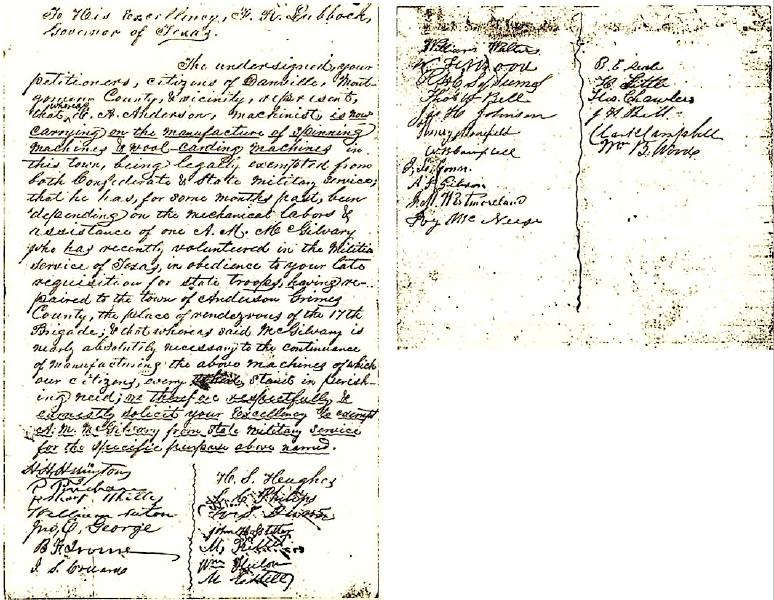 To His Excellency, F. R. Lubbock,
Governor of Texas.
The undersigned, your
petitioners, citizens of Danville, Mont-
gomery County, & vicinity, represent,
that, whereas A. Anderson, Machinist, is now
carrying on the manufacture of spinning
machines & wool-carding machines in
this town, being legally exempted from
both Confederate & State military service;
that he has, for some months past, been
depending on the mechanical labors &
assistance of one A. M. McGilvary
who has recently volunteered in the Militia
service of Texas, in obedience to your late
requisition for state troops, having re-
paired to the town of Anderson Grimes
County, the place of rendezvous of the 17th
Brigade; & that whereas said McGilvary is
nearly absolutely necessary to the continuance
of manufacturing the above machines of which
our citizens, every where, stand in perish-
ing need; we therefore respectfully &
earnestly solicit your Excellency to exempt
A. M. McGilvary from State military service
for the specific purpose above named.
William
Jno. C. George
B. F. Irvine
J. S.
H. S. Hughes
S. C. Philips
Wm
M.
William Waters
Wood
Thos W Bell
Johnson
Campbell
A. Gibson
Westmoreland
McNeese
B. E.
Little
Geo. Chawlers
J H Bell
Clark Campbell
Wm B. Woods